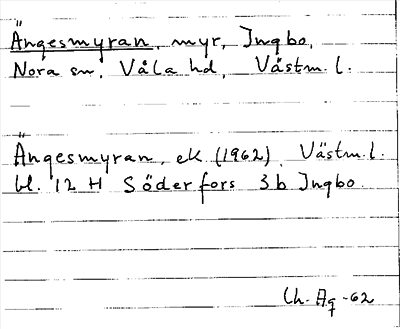 Ängesmyran, myr, Ingbo,
Nora sn, Våla hd, Västm. l.
Ängesmyran, ek (1962). Västm. l.
bl. 12 H Söderfors 3b Ingbo.
Ch. Ag -62